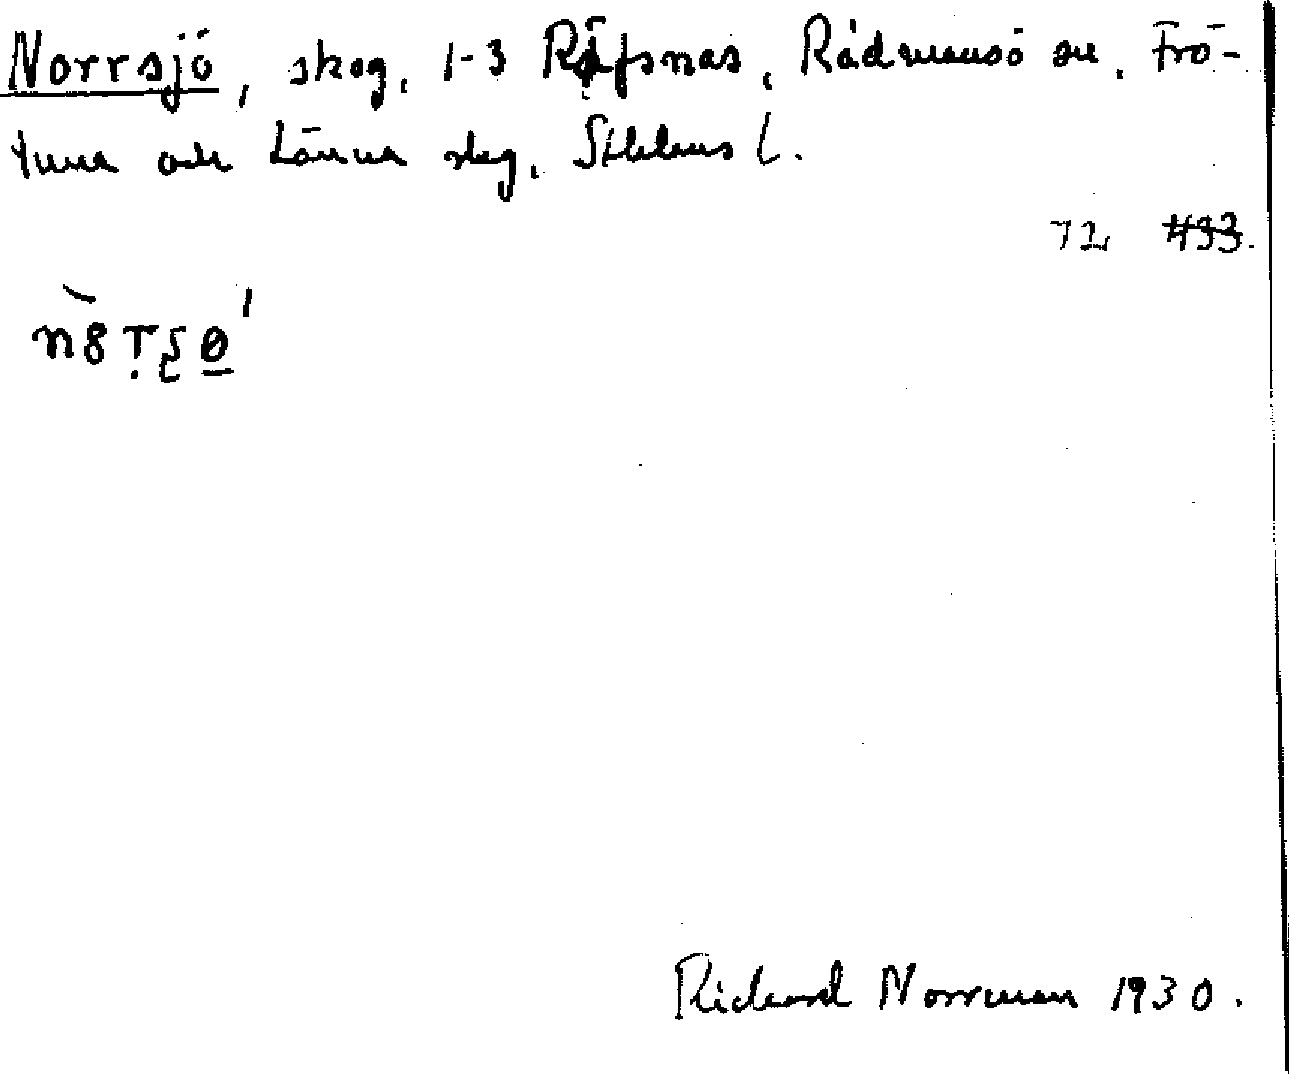 Norrsjö, skog, 1-3 Räfsnäs, Rådmansö sn, Frö-
tuna och Länna slag, Sthlms l.
72 433.
Richard Norrman 1930.